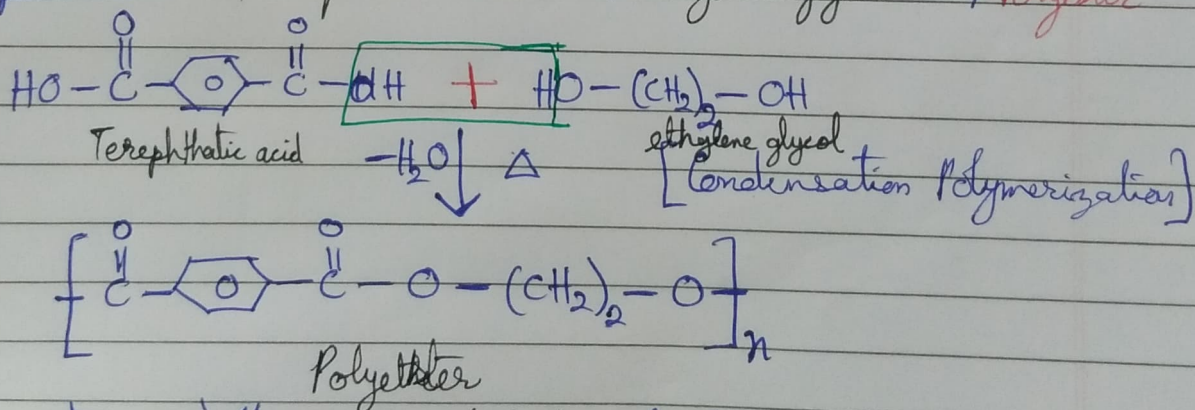 O O
HO-C-⌬-C-OH + HO-(CH2)2-OH
Terephthatic acid ethylene glycol
-H2O Δ [Condensation Polymerization]
O O
[C-⌬-C-O-(CH2)2-O]n
Polyester